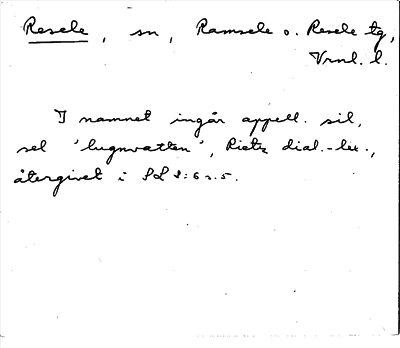 Resele, sn, Ramsele o. Resele tg,
Vrnl. l.
I namnet ingår appell. sil,
sel 'lugnvatten', Rietz dial.-lex.,
återgivet i SL 2:6 s. 5.